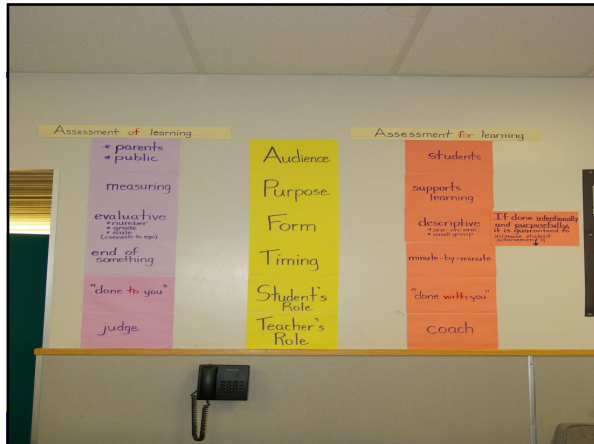 Assessment of learning
* parents
* public
measuring
evaluative
* number
* grade
* scale
(connects to ego)
end of
something
"done to you"
judge
Audience
Purpose
Form
Timing
Student's
Role
Teacher's
Role
Assessment for learning
students
supports
learning
descriptive
* one-on-one
* small group
minute-by-minute
"done with you"
coach
If done intentionally
and purposefully,
it is guaranteed to
increase student
achievement!!